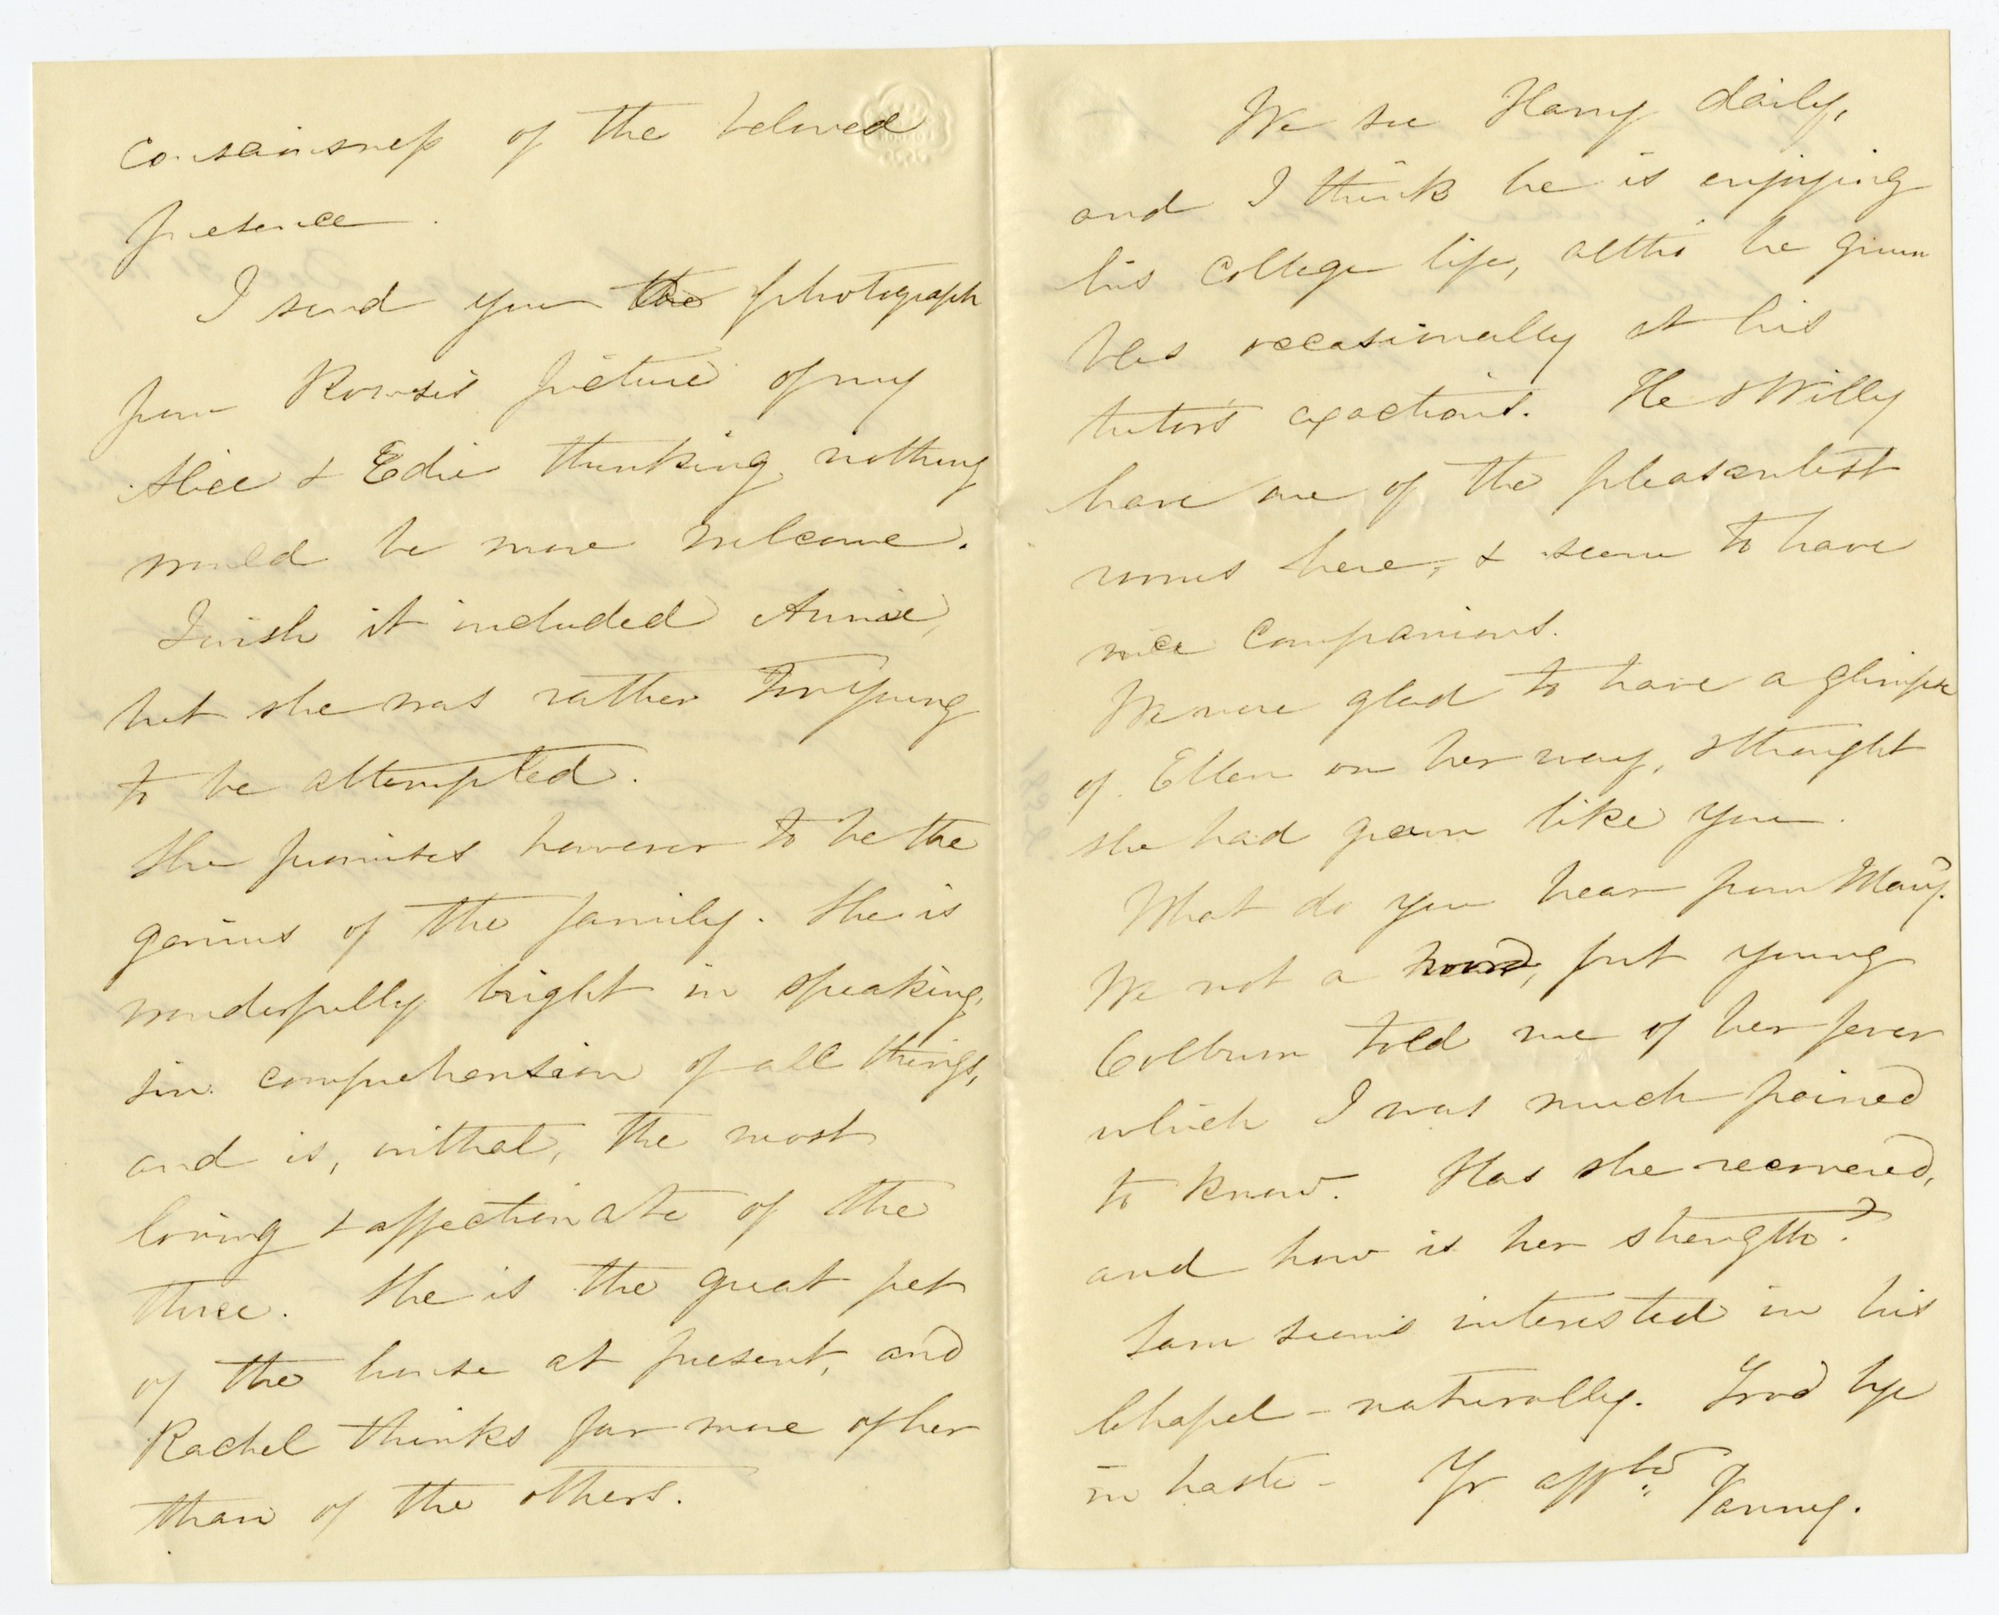 consciousness of the beloved
presence.
I send you the photograph
from Rowse's picture of my
Alice & Edie thinking nothing
would be more welcome.
I wish it included Annie,
but she was rather too young
to be attempted.
She promises however to be the
genius of the family. She is
wonderfully bright in speaking,
in comprehension of all things,
and is, withal, the most
loving & affectionate of the
three. She is the great pet
of the house at present, and
Rachel thinks far more of her
than of the others.
We see Harry daily,
and I think he is enjoying
his college life, altho he
occasionally at his
tutor's exactions. He & Willy
have one of the pleasantest
rooms here, & seem to have
nice companions.
We were glad to have a glimpse
of Ellen on her way, & thought
she had grown like you.
What do you hear from Mary?
We not a word, but young
Colburn told me of her fever
which I was much pained
to know. Has she recovered,
and how is her strength?
Sam seems interested in his
Chapel - naturally. Good bye
in haste - Yr affte. Fanny.